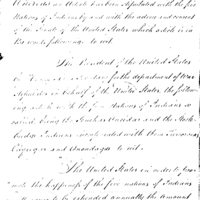 Whereas an Article has been stipulated with the five
Nations of Indians by and with the advice and consent
of the Senate of the United States which article is in
the words following to wit.
The President of the United States
for the department of War
stipulates in behalf of the United States, the follow-
ing article with the five Nations of Indians so
called being the and the Stock-
bridge Indians with them Tuscaroras
Cayugas and Onondagas to wit.
The United States in order to pro-
mote the happiness of the five nations of Indians
to be expended annually the Amount